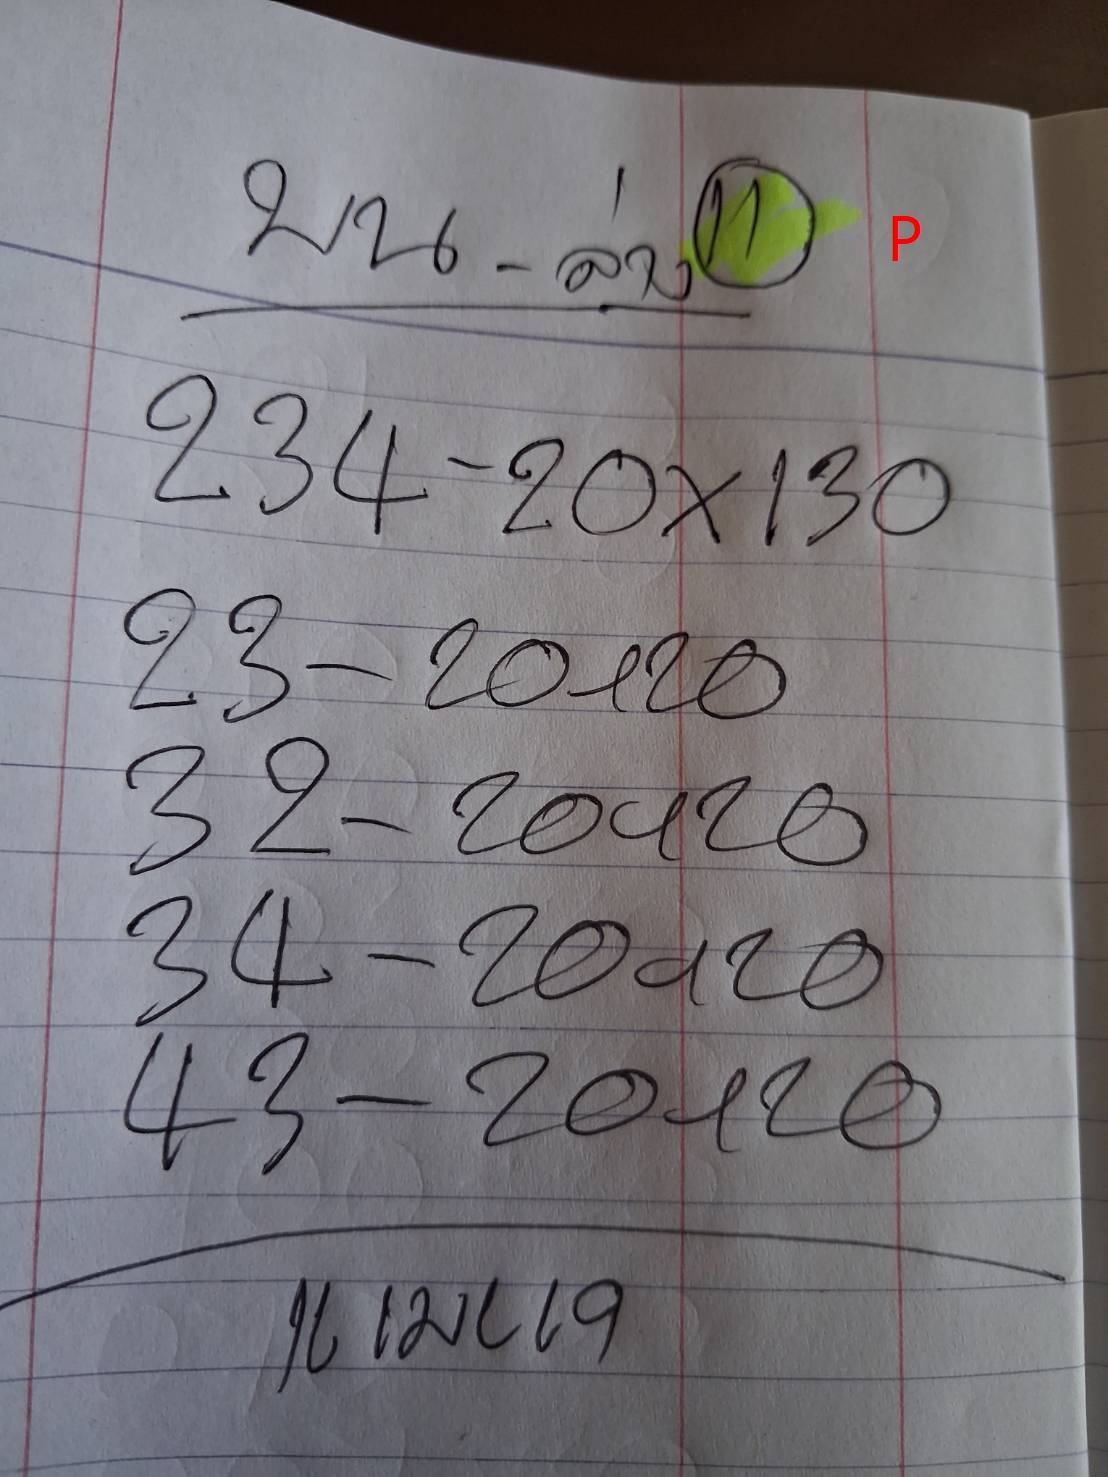 บน - ล่าง 11 P
234-20x130
23-20x20
32-20x20
34-20x20
43-20x20